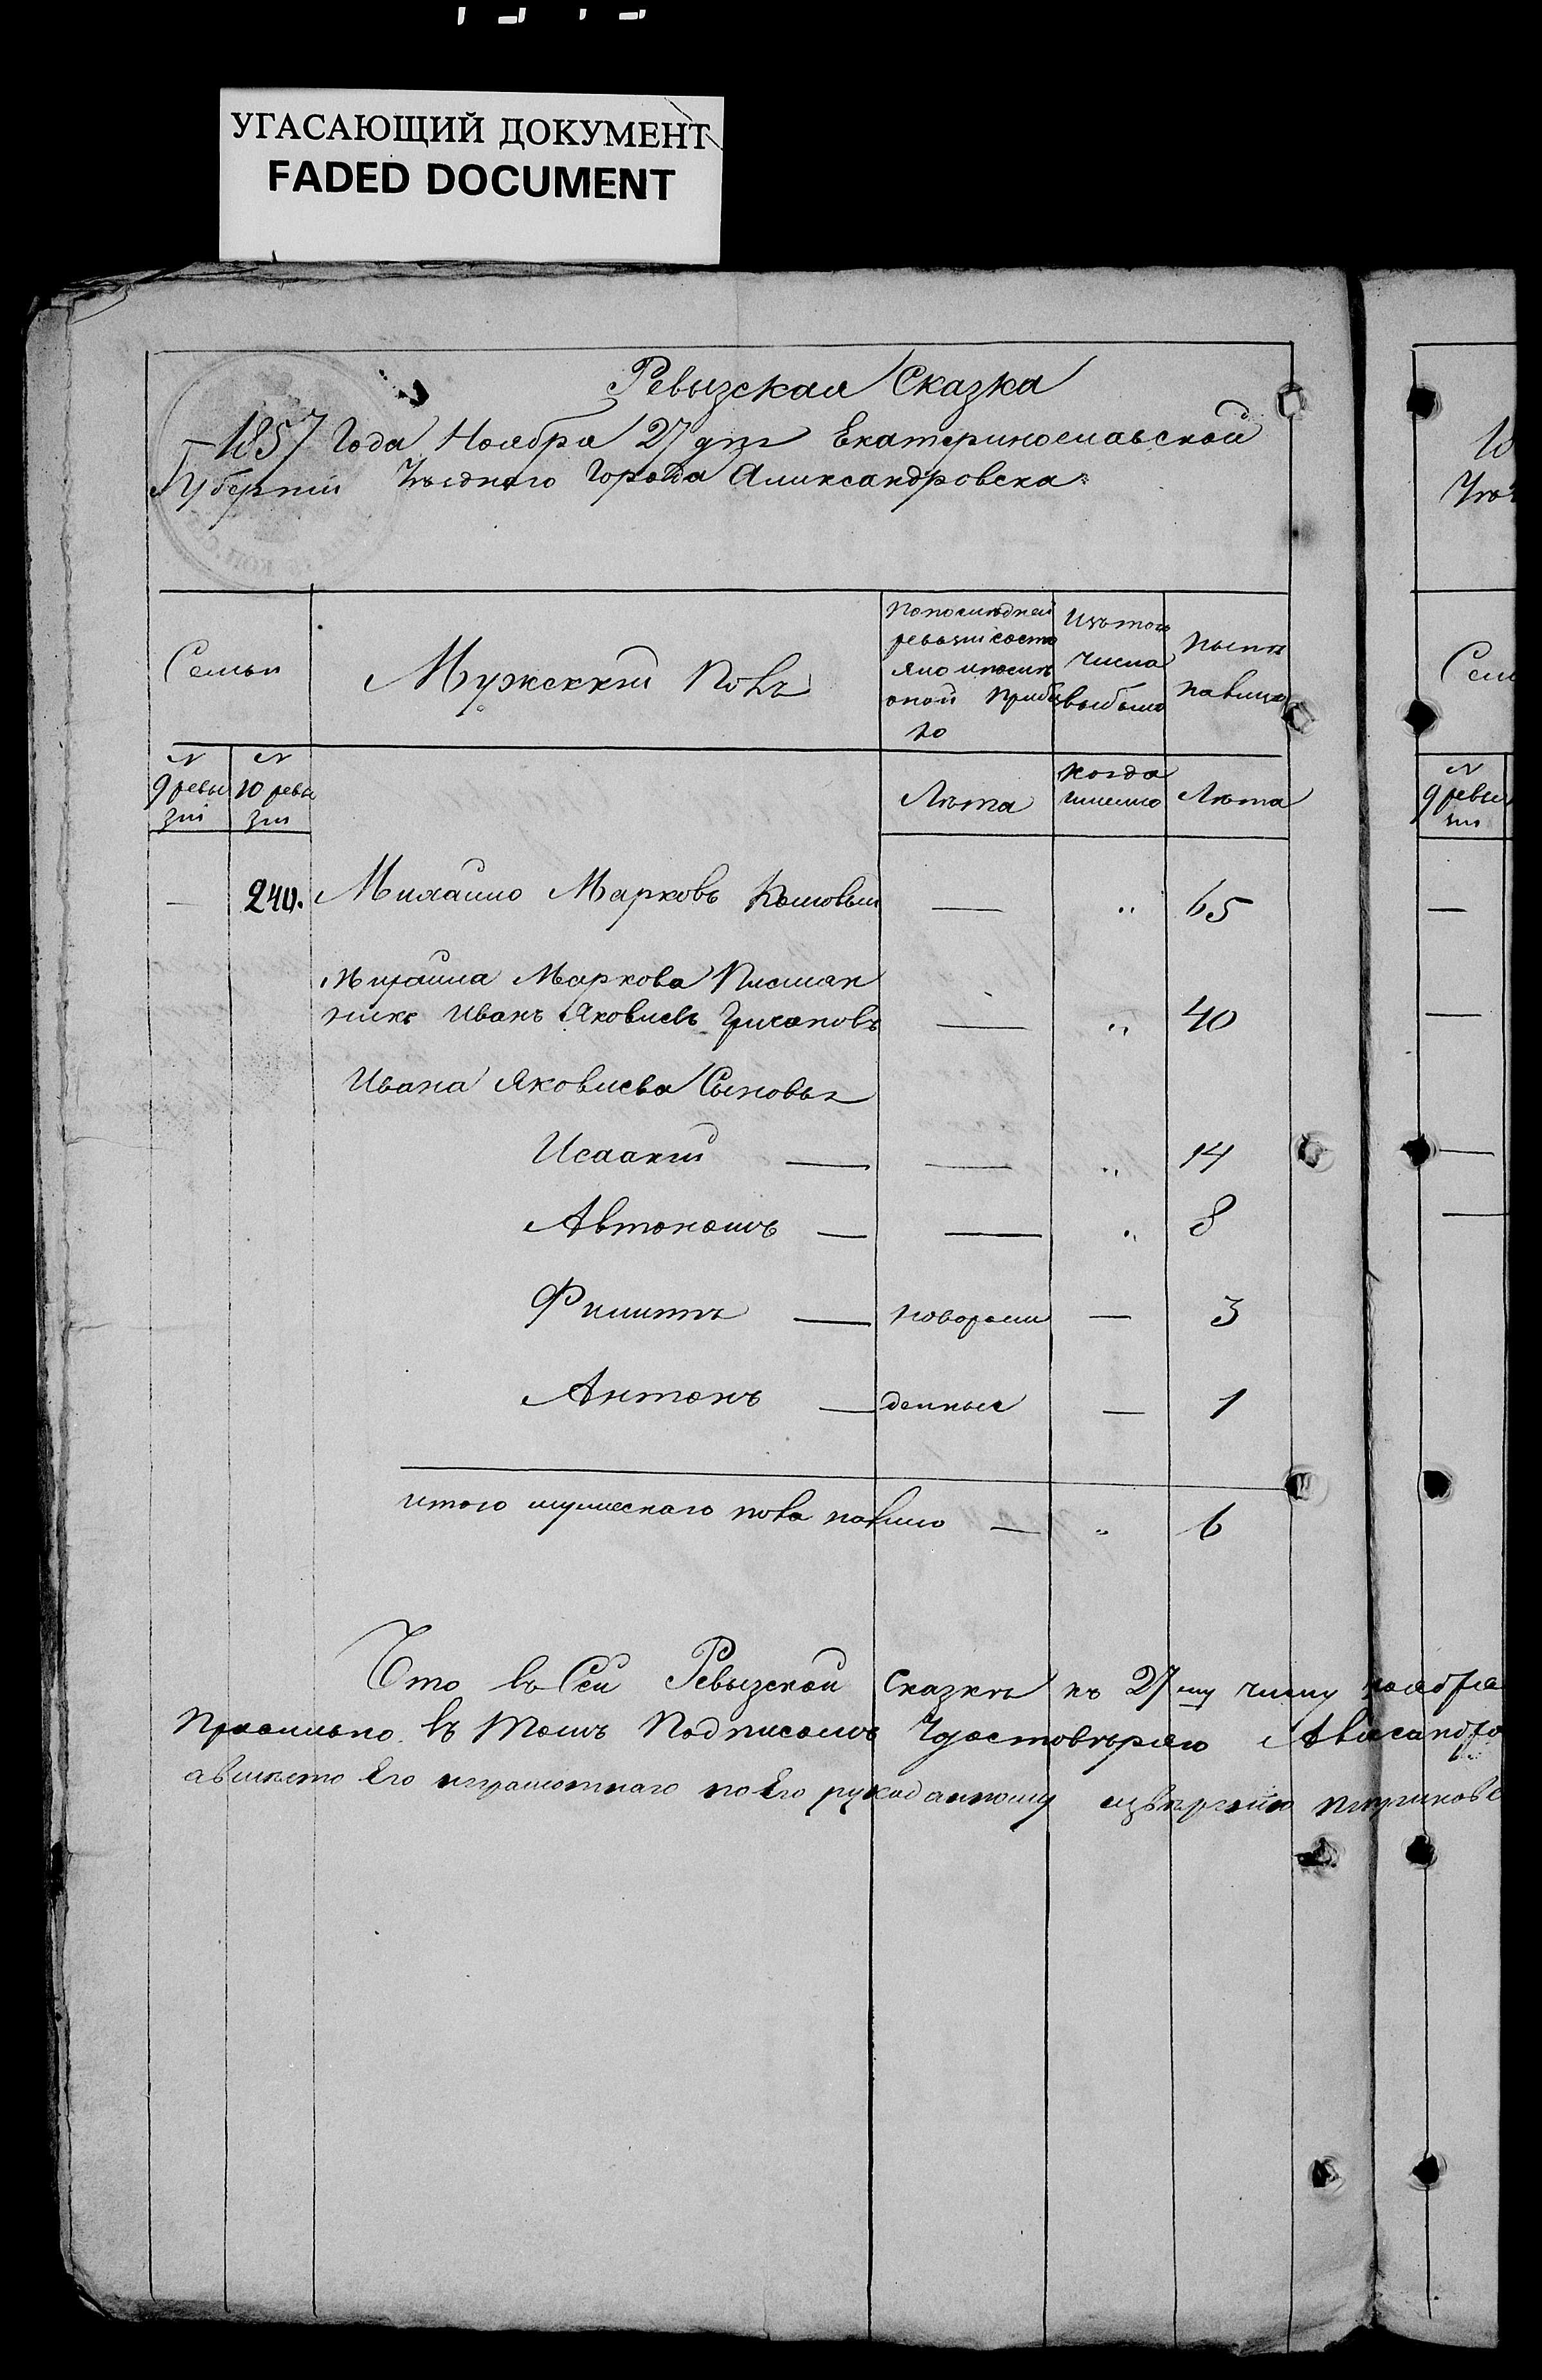 УГАСАЮЩИЙ ДОКУМЕНТ
FADED DOCUMENT
Ревызская Сказка
1857 Года Ноября 27 дня Екатеринославской
Губернии Уѣзднего Города Александровска
Семьи
Мужский полъ
По последней
ревизи состо
яло и после
оной прибы
ло
Изъ того
числа
выбыло
Ныне
налицо
N
9 ревы
зіи
N
10 ревы
зіи
Лѣта
когда
именно
Лѣта
— 240. Михаило Марковъ — " 65
Михаила Маркова Племян
никъ Иванъ Яковлевъ — " 40
Ивана Яковлева Сыновья
Исаакій — — " 14
Автономъ — — " 8
Филиппъ — новорож — 3
Антонъ — денные — 1
итого мужескаго пола налицо — " 6
Что въ Сей Ревызской Сказкѣ къ 27му числу ноября
въ томъ Подписомъ Удостовѣряю
а вместо Его неграмотнаго по Его рукоданному
Уѣз
Сем
N
9 ревы
зіи
—
—
—
—